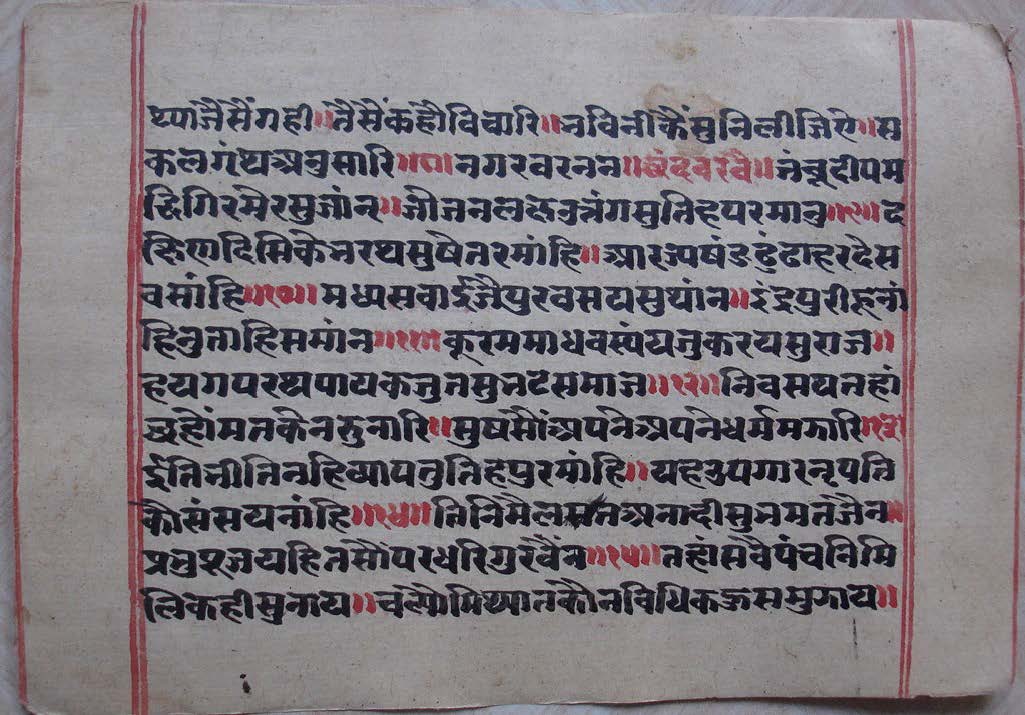 थ्याजैसैंगही॥तैसैंकहौविचारि॥भविनीकैंसुनिलीजिऐ॥स
कलग्रंथअनुसारि॥८॥नगरवरनन॥छंदवरवै॥जंबूदीपम
द्धिगिरमेरसुजांन॥जोजनललकेउत्तंगसुतिहपरमानु॥९॥द
क्षिणदिसिकेभरथसुषेतरमांहि॥आरजषंडढुंढाहरदेस
वसांहि॥१०॥मध्यसवाईजैपुरवसयसुथांन॥इंद्रपुरीहूनां
हिनुताहिसमांन॥११॥कूरममाधवस्यंयजुकरयसुराज॥
हयगयरथपायकजुतसुभटसमाज॥१२॥निवसयतहां
चहौंमतकेनरुनारि॥सुषसौंअपनेअपनेधर्ममझारि॥१३॥
ईतिभीतिनहिव्यापतुतिहपुरमांहि॥यहउपगारनृपति
कौसंसयनांहि॥१४॥तिनिमैलसतअनादीसुभमतजैन॥
प्रभुपूजयहितसौंपरधरिगुरवैंन॥१५॥तहांसवैपंचनिमि
लिकहीसुनाय॥चल्यौमिथ्यातकौनविधिकऊसमुझाय॥